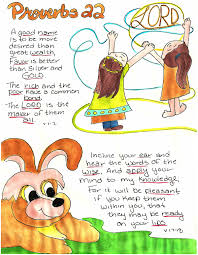 Proverbs 22
LORD
A good name
is to be more
desired than
great wealth,
Favor is better
than Silver and
GOLD.
The rich and the
poor have a common
bond.
The LORD is the
maker of them
all.
v.1-2
Incline your ear and
hear the words of the
wise, And apply your
mind to my knowledge;
for it will be pleasant
if you keep them
within you, that
they may be ready
on your lips.
v.17-18